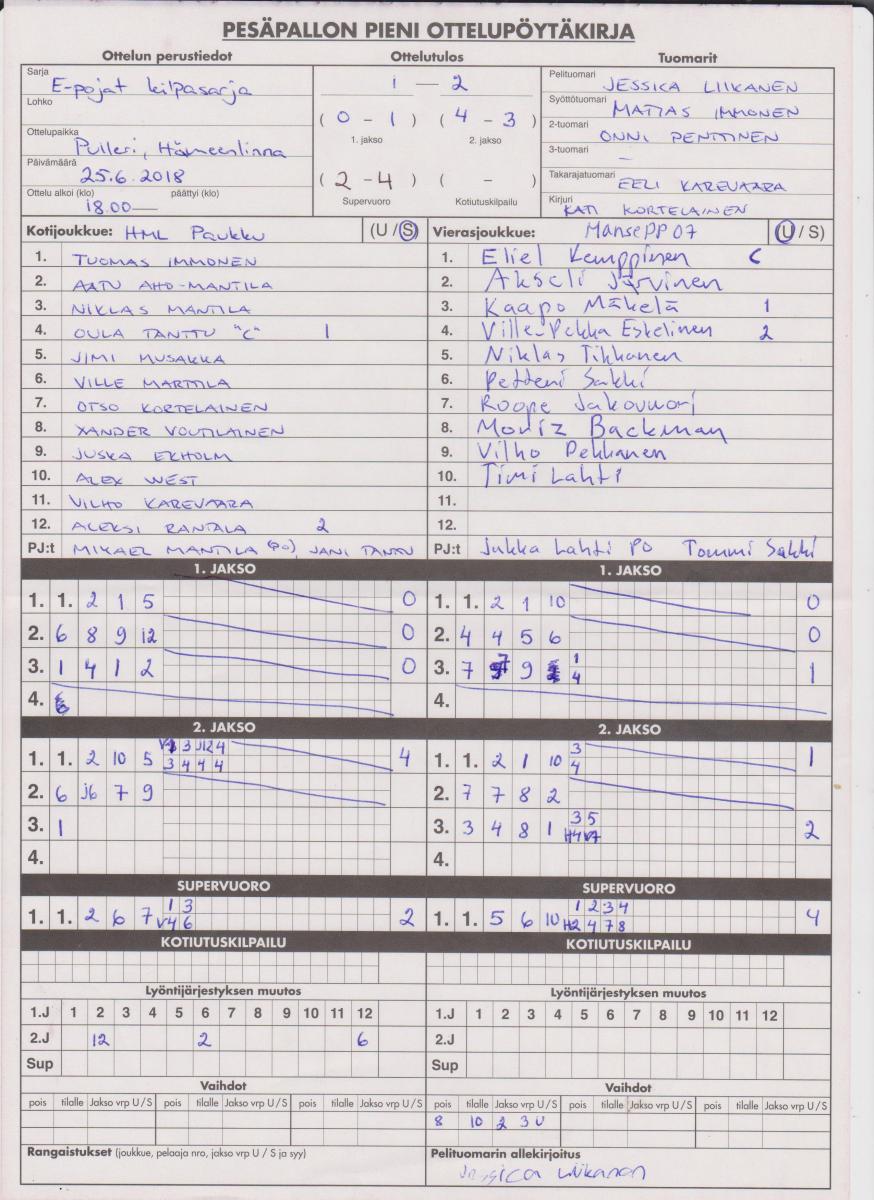 PESÄPALLON PIENI OTTELUPÖYTÄKIRJA
Ottelun perustiedot
Sarja
E-pojat kilpasarja
Lohko
Ottelupaikka
Pulleri, Hämeenlinna
Päivämäärä
25.6.2018
Ottelu alkoi (klo) päättyi (klo)
18.00
Ottelutulos
1 — 2
( 0 - 1 ) ( 4 - 3 )
1. jakso 2. jakso
( 2 - 4 ) ( - )
Supervuoro Kotiutuskilpailu
Tuomarit
Pelituomari
JESSICA LIIKANEN
Syöttötuomari
MATIAS IMMONEN
2-tuomari
ONNI PENTTINEN
3-tuomari
–
Takarajatuomari
EELI KAREVAARA
Kirjuri
KATI KORTELAINEN
Kotijoukkue: HML Paukku (U / S)
1. TUOMAS IMMONEN
2. AATU AHO-MANTILA
3. NIKLAS MANTILA
4. OULA TANTTU "C" 1
5. JIMI MUSAKKA
6. VILLE MARTTILA
7. OTSO KORTELAINEN
8. XANDER VOUTILAINEN
9. JUSKA EKHOLM
10. ALEX WEST
11. VILHO KAREVAARA
12. ALEKSI RANTALA 2
PJ:t MIKAEL MANTILA (PO), JANI TANTTU
Vierasjoukkue: MansePP07 (U / S)
1. Eliel Kemppinen C
2. Akseli Järvinen
3. Kaapo Mäkelä 1
4. Ville-Pekka Eskelinen 2
5. Niklas Tikkanen
6. Petteri Sakki
7. Roope Jakovuori
8. Moriz Backman
9. Vilho Pekkanen
10. Timi Lahti
11.
12.
PJ:t Jukka Lahti PO Tommi Sakki
1. JAKSO
1. 1. 2 1 5 0
2. 6 8 9 12 0
3. 1 4 1 2 0
4.
1. JAKSO
1. 1. 2 1 10 0
2. 4 4 5 6 0
3. 7 9 1 1
4
4.
2. JAKSO
3 J12 4
1. 1. 2 10 5 4
3 4 4 4
2. 6 J6 7 9
3. 1
4.
2. JAKSO
3
1. 1. 2 1 10 1
4
2. 7 7 8 2
3 5
3. 3 4 8 1 2
H4 V7
4.
SUPERVUORO
1 3
1. 1. 2 6 7 2
V4 6
SUPERVUORO
1 2 3 4
1. 1. 5 6 10 4
H2 4 7 8
KOTIUTUSKILPAILU
KOTIUTUSKILPAILU
Lyöntijärjestyksen muutos
1.J 1 2 3 4 5 6 7 8 9 10 11 12
2.J 12 2 6
Sup
Lyöntijärjestyksen muutos
1.J 1 2 3 4 5 6 7 8 9 10 11 12
2.J
Sup
Vaihdot
pois tilalle Jakso vrp U / S pois tilalle Jakso vrp U / S pois tilalle Jakso vrp U / S
Vaihdot
pois tilalle Jakso vrp U / S pois tilalle Jakso vrp U / S pois tilalle Jakso vrp U / S
8 10 2 3 U
Rangaistukset (joukkue, pelaaja nro, jakso vrp U / S ja syy)
Pelituomarin allekirjoitus
Jessica Liikanen